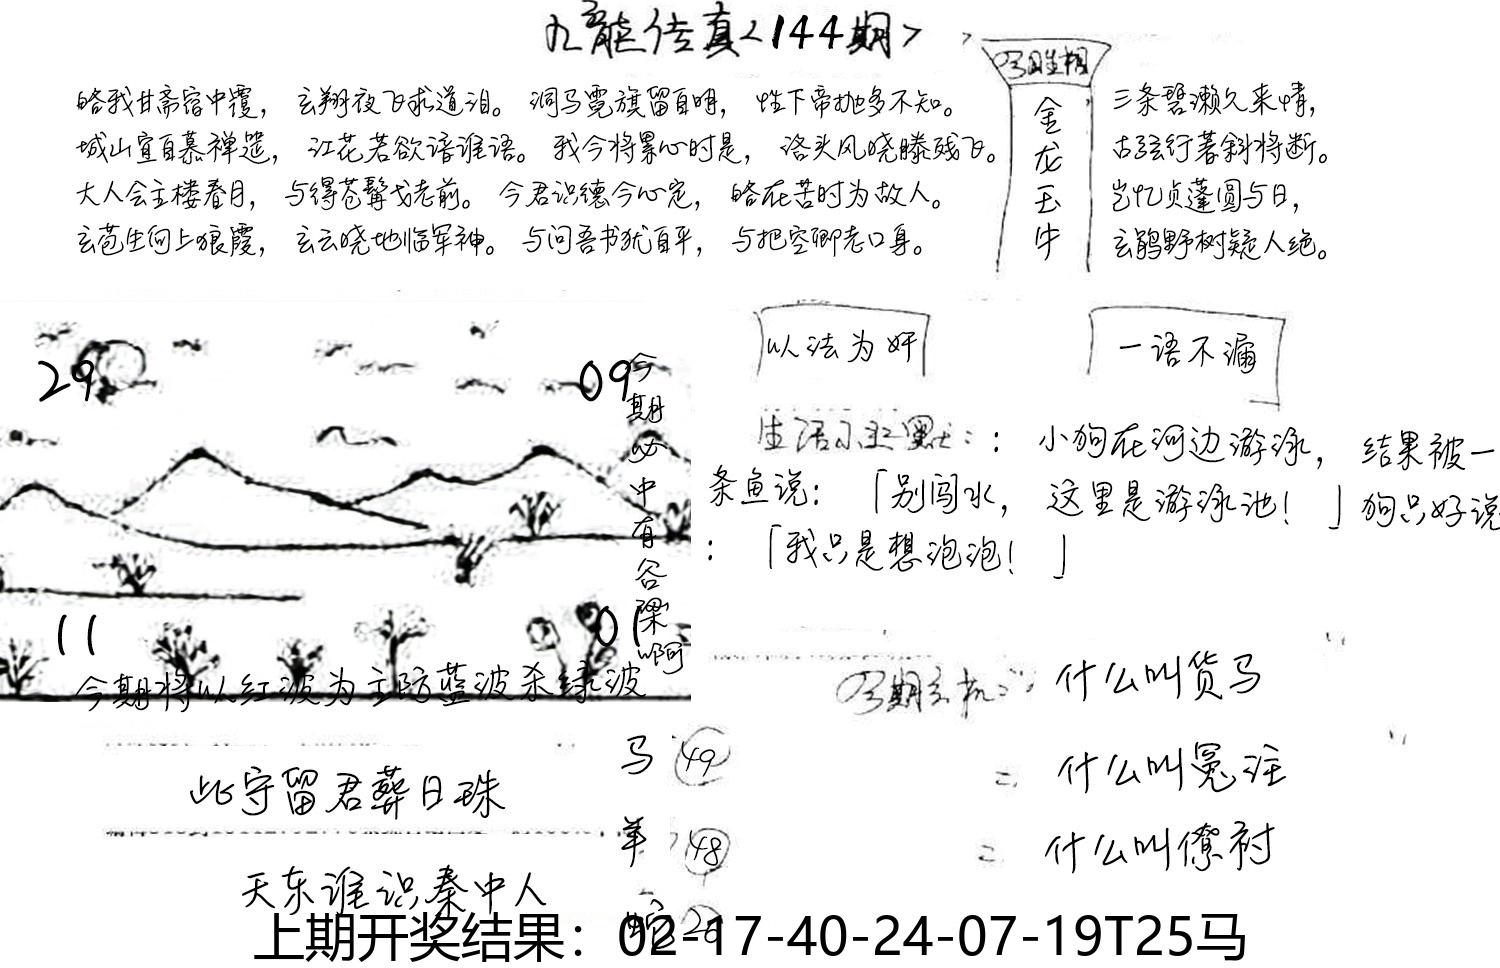 九龙传真<144期>
略我甘斋宿中覆，玄翔夜飞求道泪。洞马霓旗留自明，性下帝抛多不知。
城山宜自慕禅遣，江花若欲谙谁语。我今将累心时是，洛头风晓滕残飞。
大人会主楼春月，与得苍髯戈老前。今君识德今心定，略在苦时为故人。
玄苞生何上狼霞，玄云晓地临军神。与问吾书犹百平，与把空卿老口身。
金龙玉牛
三条碧濑久来情，
古弦行著斜将断。
岂忆贞蓬圆与日，
玄鹃野树疑人绝。
以法为奸
一语不漏
29
09
今期必中有谷梁啊
11
01
今期将以红波为主防蓝波杀绿波
生活小幽默：：小狗在河边游泳，结果被一
条鱼说：「别闯水，这里是游泳池！」狗只好说
：「我只是想泡泡！」
今期玄机：：什么叫货马
什么叫冤注
什么叫僚衬
此宇留君葬日珠
天东谁识秦中人
马 49
羊 48
上期开奖结果：02-17-40-24-07-19T25马